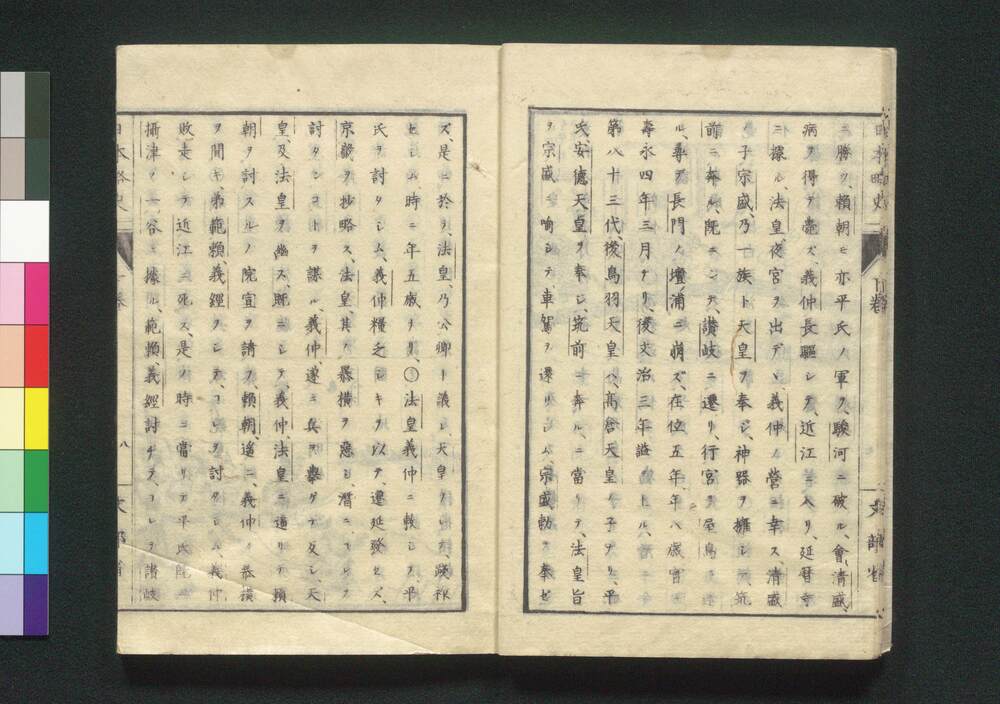 ニ勝ツ、頼朝モ亦平氏ノ軍ヲ、駿河ニ破ル、會清盛、
病ヲ得テ薨ズ、義仲長驅シテ、近江ニ入リ、延暦寺
ニ據ル、法皇、夜宮ヲ出デ、義仲ノ營ニ幸ス、清盛
ノ子宗盛、乃一族ト、天皇ヲ奉ジ、神器ヲ擁シ、筑
前ニ奔ル、既ニシテ、讃岐ニ還リ、行宮ヲ屋島ニ
ル、尋デ長門ノ壇浦ニ崩ズ、在位五年、年八歳、實
壽永四年三月ナリ、後文治三年謚ヲ上ル、
第八十三代、後鳥羽天皇ハ、高倉天皇ノ子ナリ、平
氏安德天皇ヲ奉ジ、筑前ニ奔ル、ニ當リテ、法皇旨
ヲ、宗盛ニ喻シテ車駕ヲ還サシム、宗盛勅ヲ奉ゼ
ズ、是ニ於テ、法皇、乃公卿ト議シ、天皇ヲ踐祚
セシム、時ニ年五歳ナリ、〇法皇義仲ニ敕シテ、平
氏ヲ討タシム、義仲糧乏シキヲ以テ、遷延發セズ、
京畿ヲ抄略ス、法皇、其ノ暴横ヲ惡ミ、潛ニコレヲ
討タンコトヲ謀ル、義仲、遂ニ兵ヲ擧ゲテ反シ、天
皇及法皇ヲ幽ス、既ニシテ、義仲、法皇ニ逼リテ頼
朝ヲ討スルノ院宣ヲ請フ、頼朝、遙ニ、義仲ノ暴横
ヲ聞キ、弟範頼、義經ヲシテ、コレヲ討タシム、義仲
敗走シテ近江ニ死ス、是ノ時ニ當リテ平氏既ニ
攝津ノ一谷ニ據ル、範頼、義經討チテ、コレヲ讃岐